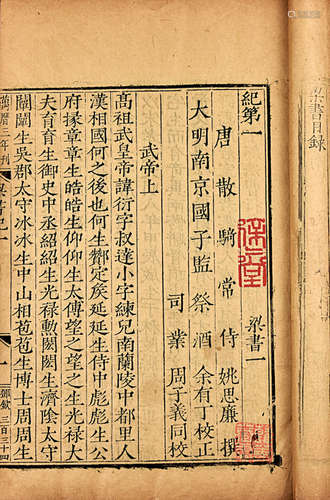 梁書目錄
紀第一 梁書一
唐散騎常侍姚思廉撰
大明南京國子監祭酒余有丁校正
司業周子義同校
武帝上
高祖武皇帝諱衍字叔達小字練兒南蘭陵中都里人
漢相國何之後也何生酇定矦延延生侍中彪彪生公
府掾章章生皓皓生仰仰生太傅望之望之生光祿大
夫育育生御史中丞紹紹生光祿勲閎閎生濟陰太守
闡闡生吳郡太守冰冰生中山相苞苞生博士周周生
萬曆三年刊 梁書紀一 一 三百三十四